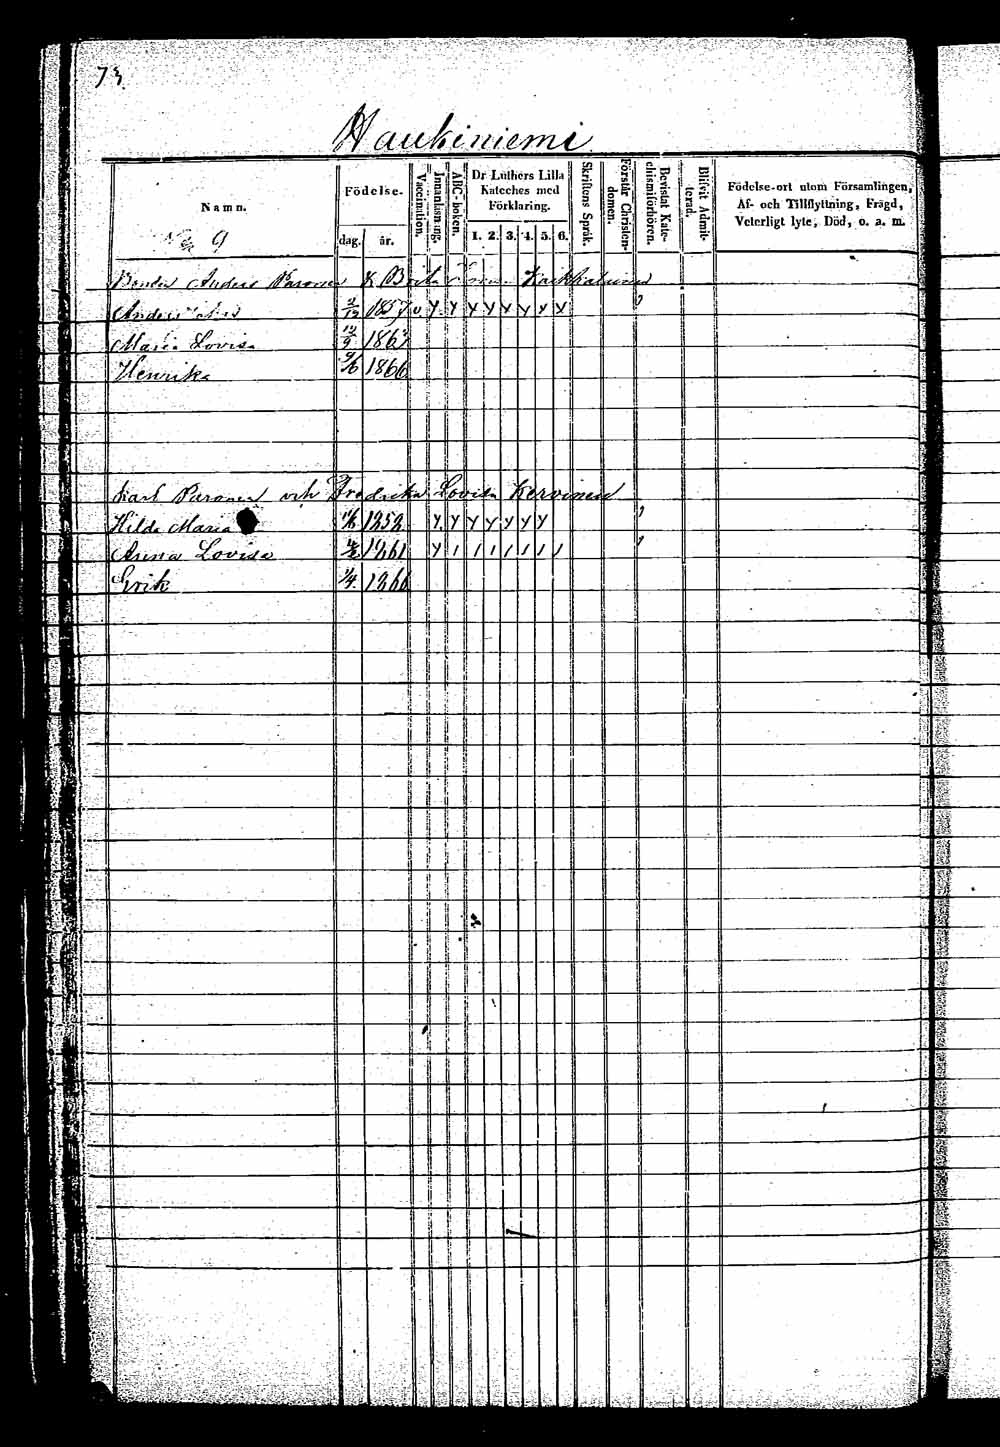 73.
Haukiniemi
Namn. Födelse. dag. år. Vaccination. Innanläsning. ABC-boken. Dr Luthers Lilla Kateches med Förklaring. 1. 2. 3. 4. 5. 6. Skriftens Språk. Förstår Christendomen. Bevistat Katechismiförhören. Blifvit Admitterad. Födelse-ort utom Församlingen, Af- och Tillflyttning, Frägd, Veterligt lyte, Död, o. a. m.
9
Bonden Anders Paronen & Brita Kaikkalainen
Anders 2/12 1857 v y y y y y y y x
Maria Lovisa 1867
Henrika 9/6 1866
Karl Paronen och Fredrika Lovisa Kervinen
Hilda Maria y y y y y y y
Anna Lovisa 1861 y / / / / / / /
Erik 1/4 1866